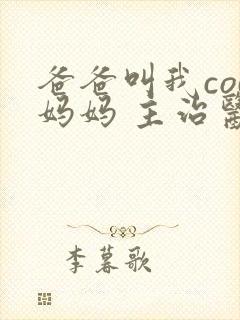 爸爸叫我co
妈妈 主治醫
李暮歌